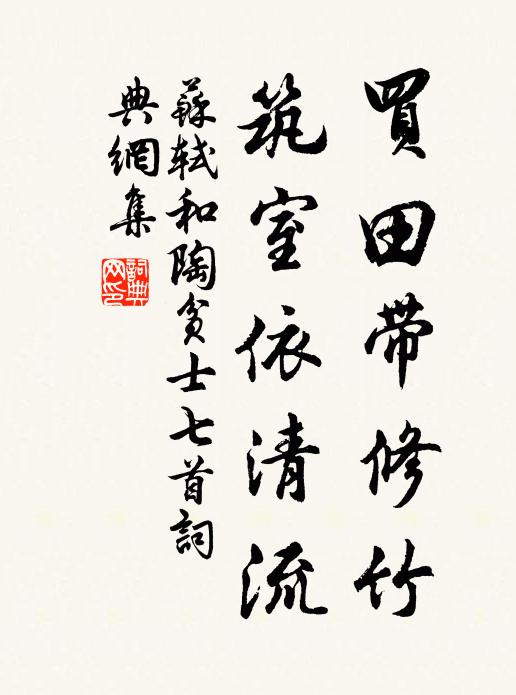 買田帶修竹
筑室依清流
蘇軾和陶貧士七首詞
典網集
詞典
网印